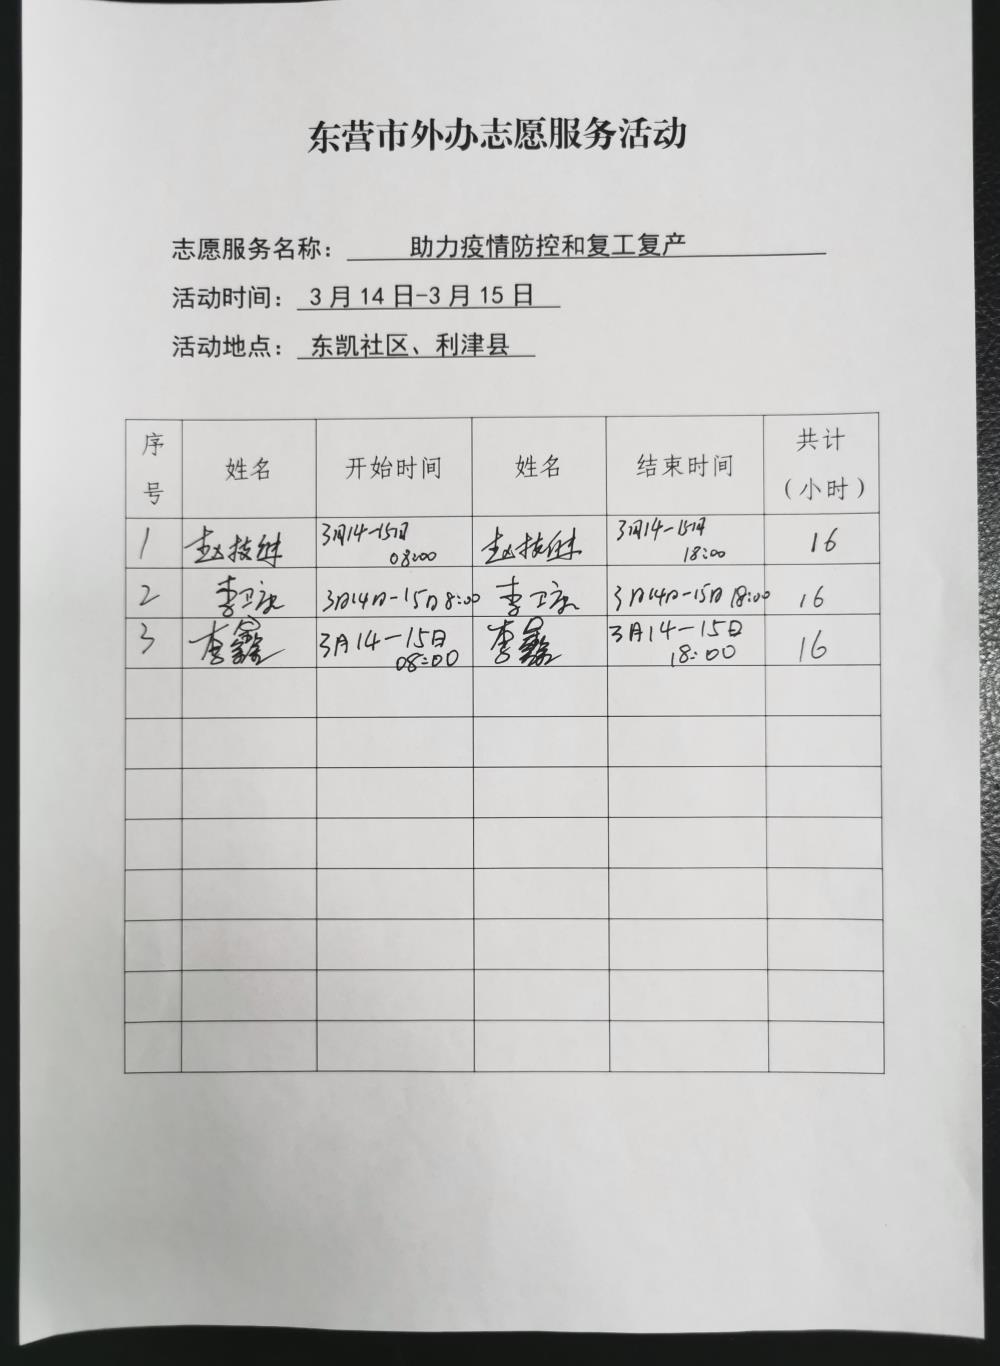 东营市外办志愿服务活动
志愿服务名称： 助力疫情防控和复工复产
活动时间： 3月14日-3月15日
活动地点： 东凯社区、利津县
序号 姓名 开始时间 姓名 结束时间 共计（小时）
1 赵 3月14-15日 08:00 赵 3月14-15日 18:00 16
2 李卫 3月14日-15日8:00 李卫 3月14日-15日18:00 16
3 李鑫 3月14-15日 08:00 李鑫 3月14-15日 18:00 16